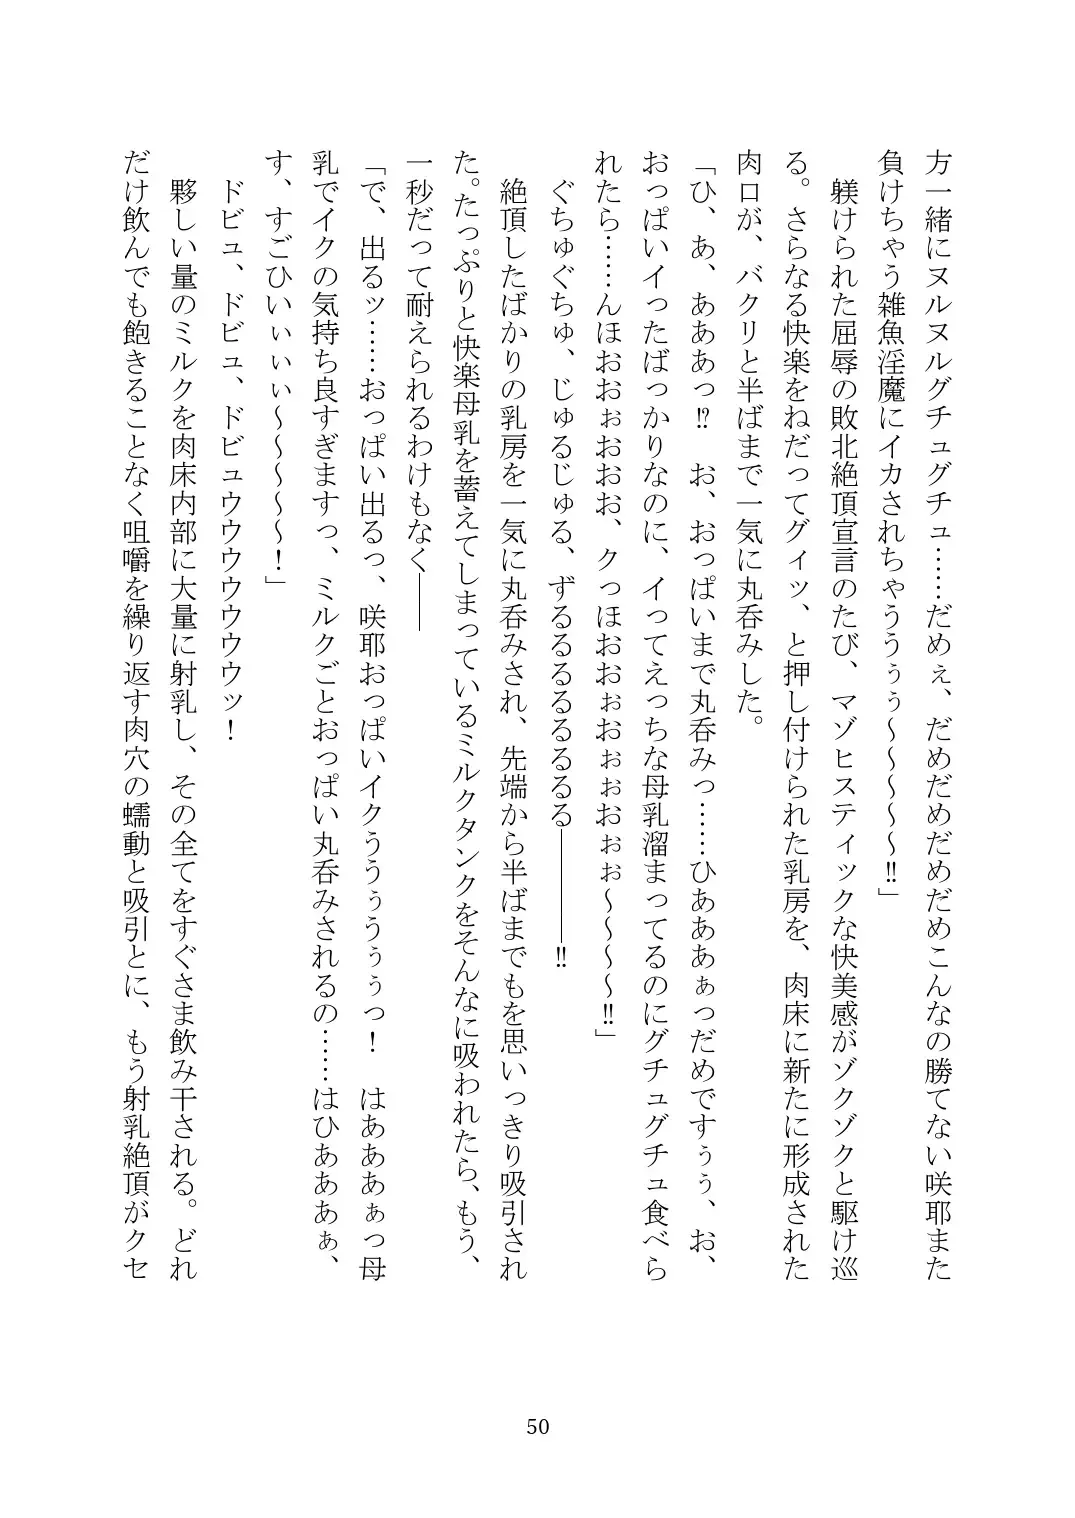 方一緒にヌルヌルグチュグチュ……だめぇ、だめだめだめだめこんなの勝てない咲耶また
負けちゃう雑魚淫魔にイカされちゃうぅぅぅ～～～～～‼」
　躾けられた屈辱の敗北絶頂宣言のたび、マゾヒスティックな快美感がゾクゾクと駆け巡
る。さらなる快楽をねだってグィッ、と押し付けられた乳房を、肉床に新たに形成された
肉口が、バクリと半ばまで一気に丸呑みした。
「ひ、あ、あああっ⁉　お、おっぱいまで丸呑みっ……ひあああぁっだめですぅぅ、お、
おっぱいイったばっかりなのに、イってえっちな母乳溜まってるのにグチュグチュ食べら
れたら……んほおおぉおおお、クっほおおぉおぉぉおぉぉ～～～～‼」
　ぐちゅぐちゅ、じゅるじゅる、ずるるるるるるるる――――‼
　絶頂したばかりの乳房を一気に丸呑みされ、先端から半ばまでもを思いっきり吸引され
た。たっぷりと快楽母乳を蓄えてしまっているミルクタンクをそんなに吸われたら、もう、
一秒だって耐えられるわけもなく――
「で、出るッ……おっぱい出るっ、咲耶おっぱいイクうううぅうぅぅっ！　はあああぁっ母
乳でイクの気持ち良すぎますっ、ミルクごとおっぱい丸呑みされるの……はひあああぁ、
す、すごひいぃぃぃ～～～～～！」
　ドビュ、ドビュ、ドビュウウウウウウッ！
　夥しい量のミルクを肉床内部に大量に射乳し、その全てをすぐさま飲み干される。どれ
だけ飲んでも飽きることなく咀嚼を繰り返す肉穴の蠕動と吸引とに、もう射乳絶頂がクセ
50